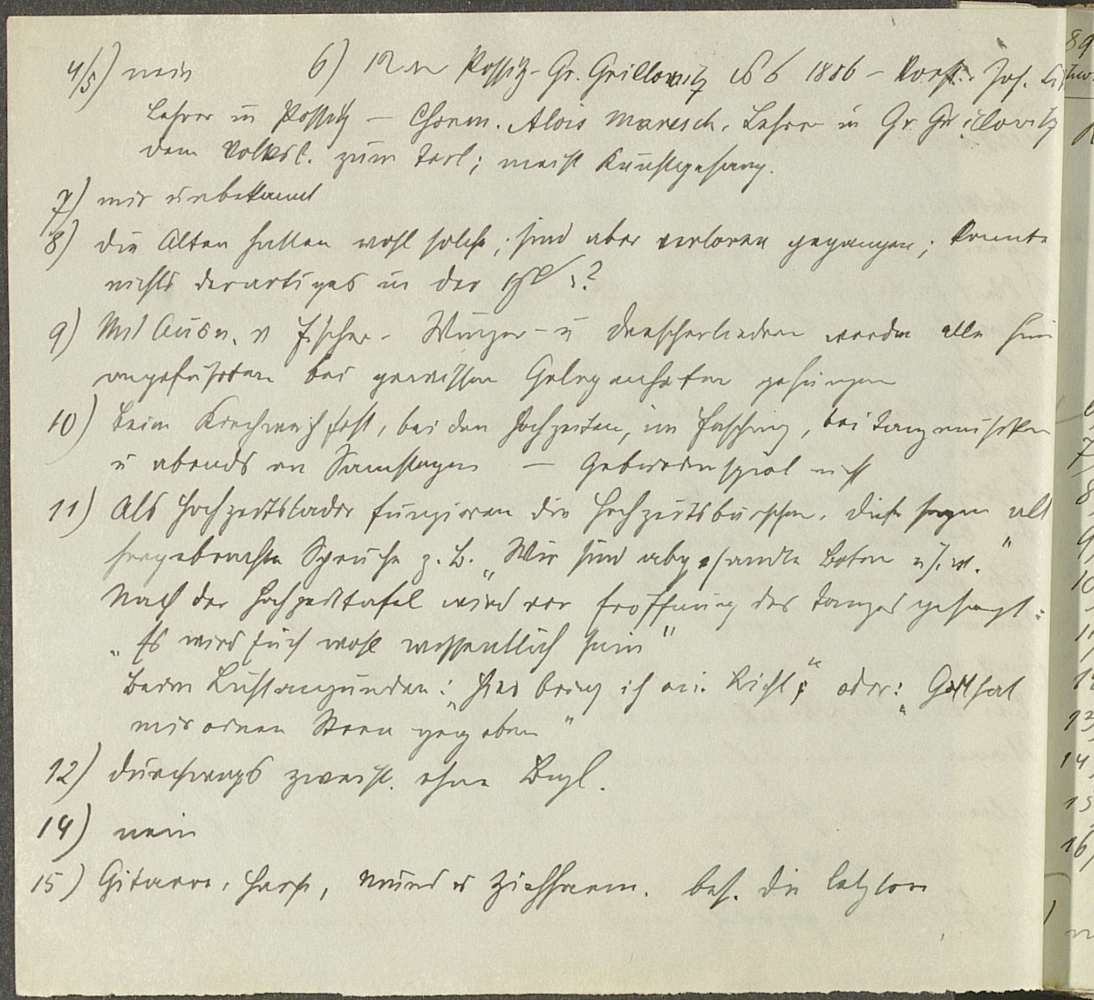 4/5) nein 6) Possitz-Gr. Grillowitz 1886 – Vorst. Jos.
Lehrer in Possitz – Chorm. Alois Maresch, Lehrer in Gr. Grillowitz
dem Volksl. zum Teil; meist Kunstgesang.
7) mir unbekannt
8) die Alten hatten wohl solche, sind aber verloren gegangen; konnte
nichts derartiges in der ?
9) Mit Ausn. v Fischer- Winzer- u Drescherliedern werden alle hier
angeführten bei gewissen Gelegenheiten gesungen
10) beim Kirchweihfest, bei den Hochzeiten, im Fasching, bei Tanzmusiken
u abends an Samstagen – Geberdenspiel nicht
11) Als Hochzeitslader fungieren die Hochzeitsburschen, diese sagen alt
hergebrachte Sprüche z. B. „Wir sind abgesandte Boten u. s. w."
Nach der Hochzeitstafel wird vor Eröffnung des Tanzes gesagt:
„Es wird Euch wohl wissentlich sein"
Beim Lichtanzünden: „Hier bring ich ein Licht" oder: „Gott hat
mir einen Stern gegeben"
12) durchwegs zweist. ohne Begl.
14) nein
15) Gitarre, Harfe, Mund u Ziehharm. bes. die letztere